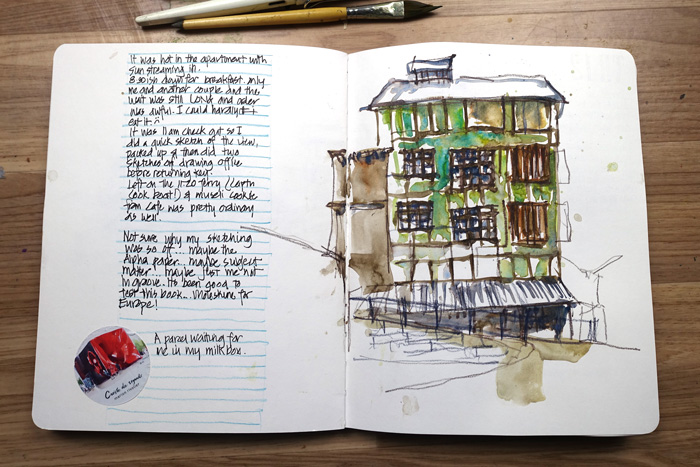 It was hot in the apartment with
sun streaming in.
8.30ish down for breakfast. only
me and another couple and the
wait was still LONG and order
was awful. I could hardly
eat it
It was 11am check out so I
did a quick sketch of the view,
packed up & then did two
sketches at drawing office
before returning key.
Left on the 11.20 ferry (Capth
Cook boat!) & muesli cookie
from cafe was pretty ordinary
as well.
Not sure why my sketching
was so off... maybe the
Alpha paper... maybe subject
matter... maybe just me not
in groove. Its been good to
test this book... Moleskine for
Europe!
A parcel waiting for
me in my milkbox.